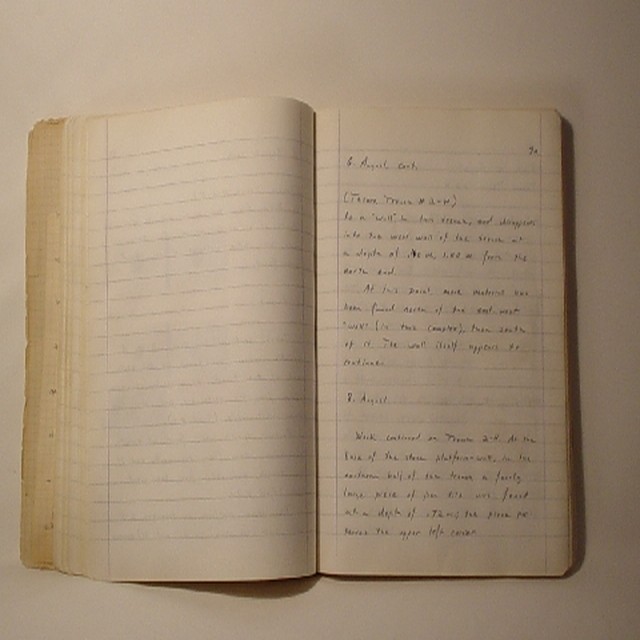 6. August cont.
(Tesoro Trench # 2-H)
be a "wall" in this trench, and disappears
into the west wall of the trench at
a depth of m, 1.80 m from the
north end.
At this point, more material has
been found north of the east-west
"wall" (in this complex), than south
of it. The wall itself appears to
continue.
8. August
Work continued on Trench 2-H. At the
base of the stone platform-wall, in the
northern half of the trench a fairly
large piece of pan tile was found
at a depth of .72 m; the piece pre
serves the upper left corner